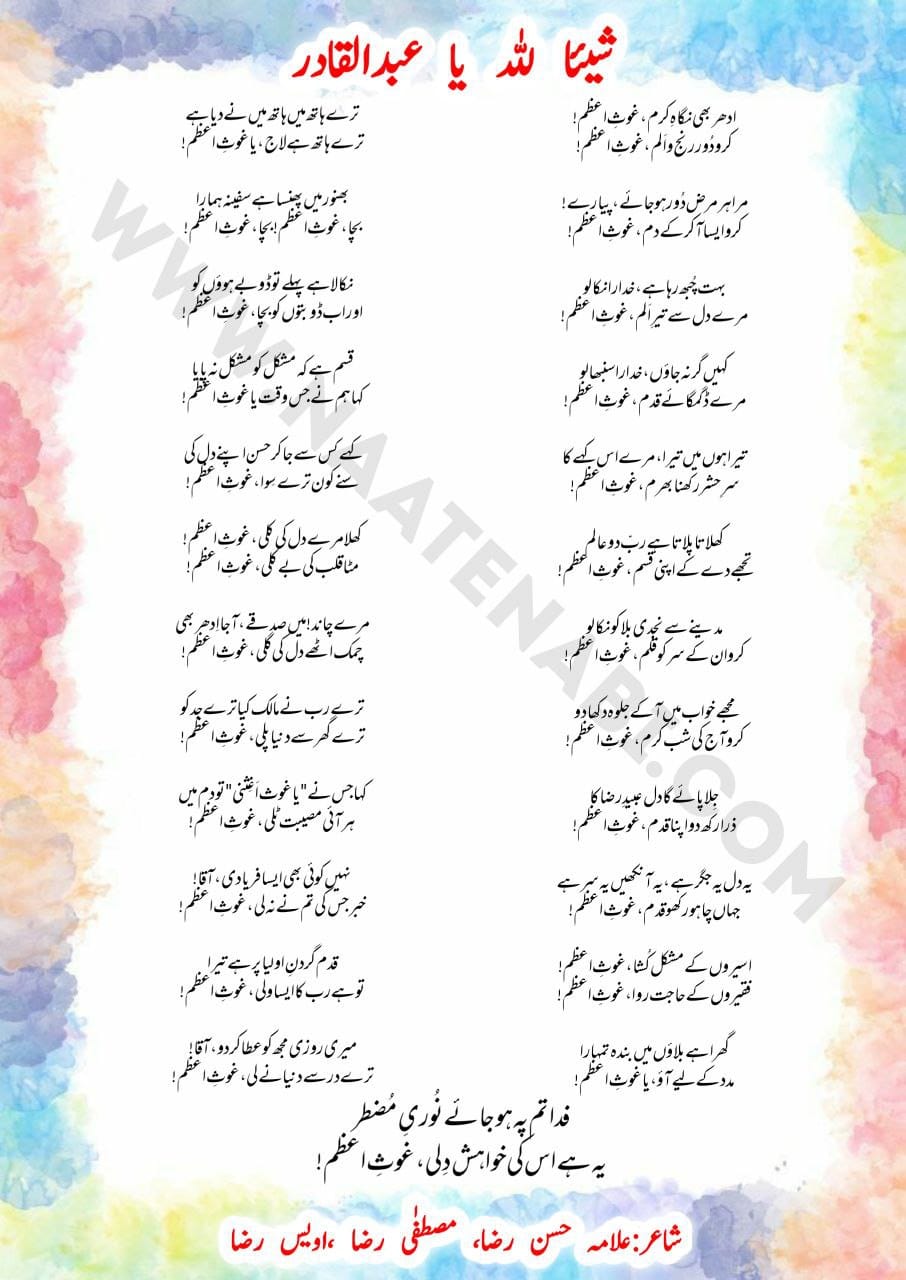 شیئا للہ یا عبدالقادر
ادھر بھی نگاہِ کرم، غوثِ اعظم!
کرو دُور رنج و اَلم، غوثِ اعظم!
مرا ہر مرض دُور ہوجائے، پیارے!
کرو ایسا آکر کے دم، غوثِ اعظم!
بہت چُبھ رہا ہے، خدارا نکالو
مرے دل سے تیرِ اَلم، غوثِ اعظم!
کہیں گر نہ جاؤں، خدارا سنبھالو
مرے ڈگمگائے قدم، غوثِ اعظم!
تیرا ہوں میں تیرا، مرے اس کہے کا
سرِ حشر رکھنا بھرم، غوثِ اعظم!
کھلاتا پلاتا ہے ربِّ دو عالم
تجھے دے کے اپنی قسم، غوثِ اعظم!
مدینے سے نجدی بلا کو نکالو
کرو ان کے سر کو قلم، غوثِ اعظم!
مجھے خواب میں آکے جلوہ دکھا دو
کرو آج کی شب کرم، غوثِ اعظم!
جِلا پائے گا دل عبید رضا کا
ذرا رکھ دو اپنا قدم، غوثِ اعظم!
یہ دل یہ جگر ہے، یہ آنکھیں یہ سر ہے
جہاں چاہو رکھو قدم، غوثِ اعظم!
اسیروں کے مشکل کُشا، غوثِ اعظم!
فقیروں کے حاجت روا، غوثِ اعظم!
گھرا ہے بلاؤں میں بندہ تمہارا
مدد کے لیے آؤ، یا غوثِ اعظم!
ترے ہاتھ میں ہاتھ میں نے دیا ہے
ترے ہاتھ ہے لاج، یا غوثِ اعظم!
بھنور میں پھنسا ہے سفینہ ہمارا
بچا، غوثِ اعظم! بچا، غوثِ اعظم!
نکالا ہے پہلے تو ڈوبے ہوؤں کو
اور اب ڈوبتوں کو بچا، غوثِ اعظم!
قسم ہے کہ مشکل کو مشکل نہ پایا
کہا ہم نے جس وقت یا غوثِ اعظم!
کہے کس سے جا کر حسن اپنے دل کی
سنے کون ترے سِوا، غوثِ اعظم!
کھلا مرے دل کی کلی، غوثِ اعظم!
مٹا قلب کی بے کلی، غوثِ اعظم!
مرے چاند! میں صدقے، آجا اِدھر بھی
چمک اٹھے دل کی گلی، غوثِ اعظم!
ترے رب نے مالک کیا ترے جد کو
ترے گھر سے دنیا پلی، غوثِ اعظم!
کہا جس نے "یا غوث اَغِثْنی" تو دم میں
ہر آئی مصیبت ٹلی، غوثِ اعظم!
نہیں کوئی بھی ایسا فریادی، آقا!
خبر جس کی تم نے نہ لی، غوثِ اعظم!
قدم گردنِ اولیا پر ہے تیرا
تو ہے رب کا ایسا ولی، غوثِ اعظم!
میری روزی مجھ کو عطا کر دو، آقا!
ترے در سے دنیا نے لی، غوثِ اعظم!
فدا تم پہ ہو جائے نُوریِ مُضطر
یہ ہے اس کی خواہش دِلی، غوثِ اعظم!
شاعر: علامہ حسن رضا، مصطفٰی رضا، اویس رضا
WWW.NAATENABI.COM